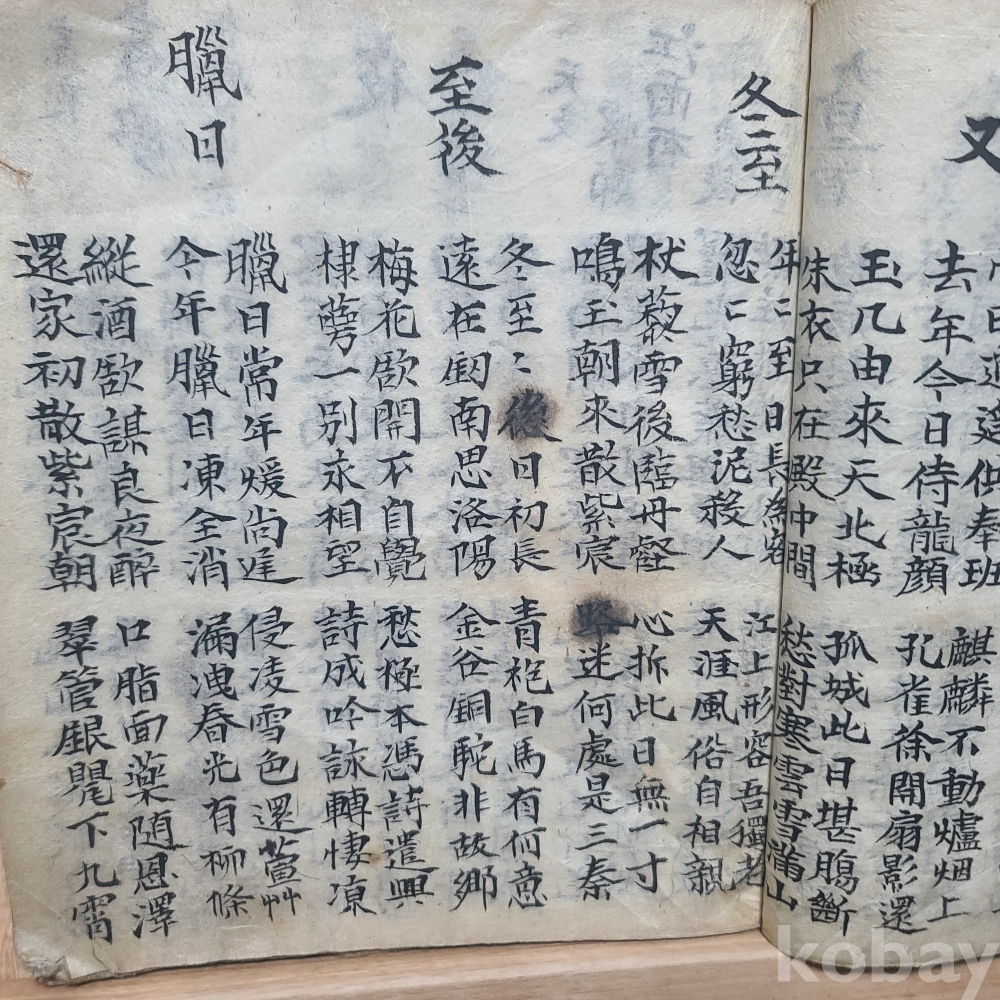 又
供奉班
去年今日侍龍顔
麒麟不動爐烟上
孔雀徐開扇影還
玉几由來天北極
朱衣只在殿中間
孤城此日堪腸斷
愁對寒雲雪滿山
冬至
年〻至日長為客
忽〻窮愁泥殺人
江上形容吾獨老
天涯風俗自相親
杖藜雪後臨丹壑
鳴玉朝來散紫宸
心拆此日無一寸
路迷何處是三秦
至後
冬至〻後日初長
遠在釰南思洛陽
青袍白馬有何意
金谷銅駝非故鄉
梅花欲開不自覺
棣萼一別永相望
愁極本憑詩遣興
詩成吟詠轉悽凉
臘日
臘日常年煖尚遙
今年臘日凍全消
侵凌雪色還萱艸
漏洩春光有柳條
縱酒欲謀良夜醉
還家初散紫宸朝
口脂面藥随恩澤
翠管銀甖下九霄
kobay